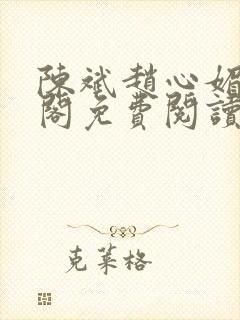 陳斌趙心媚
閣免費閱讀
克萊格